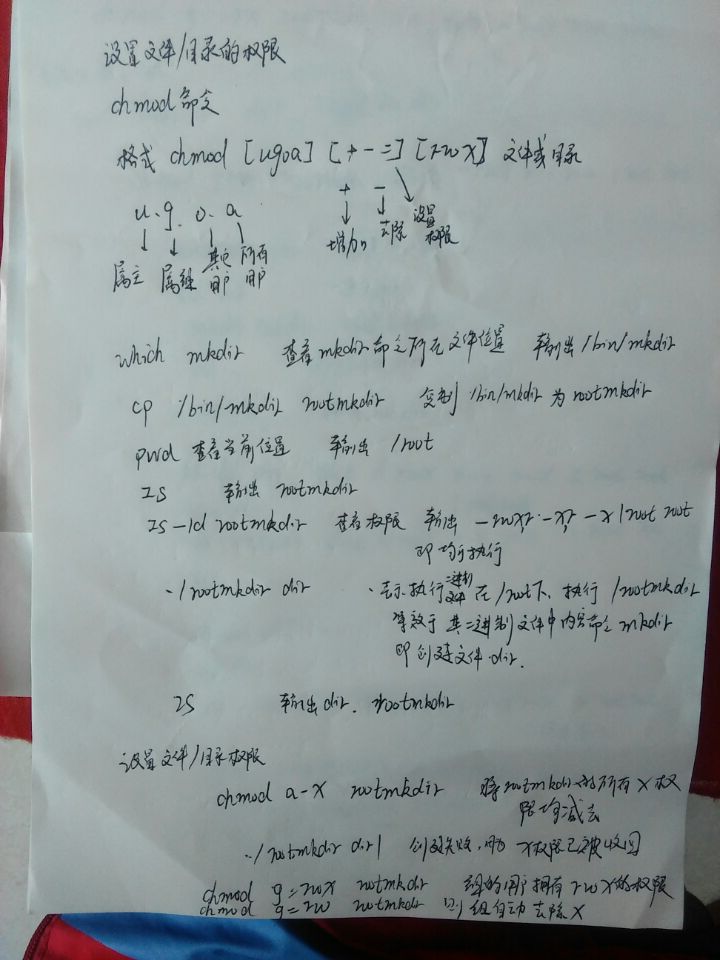 设置文件/目录的权限
chmod 命令
格式 chmod [ugoa] [+-=] [rwx] 文件或目录
u. g. o. a
+ -
属主 属组 其它用户 所有用户
增加 去除 设置权限
which mkdir 查看mkdir命令所在文件位置 输出 /bin/mkdir
cp /bin/mkdir rootmkdir 复制 /bin/mkdir 为 rootmkdir
pwd 查看当前位置 输出 /root
ls 输出 rootmkdir
ls -ld rootmkdir 查看权限 输出 -rwxr-xr-x 1 root root
即均可执行
./rootmkdir dir .表示执行二进制文件 在/root下. 执行 /rootmkdir
等效于 其二进制文件中内容命令 mkdir
即创建文件 dir.
ls 输出 dir. rootmkdir
设置文件/目录权限
chmod a-x rootmkdir 将rootmkdir的所有x权
限均减去
./rootmkdir dir1 创建失败, x权限已被收回
chmod g=rwx rootmkdir 组的用户拥有rwx的权限
chmod g=rw rootmkdir 则组自动去除x